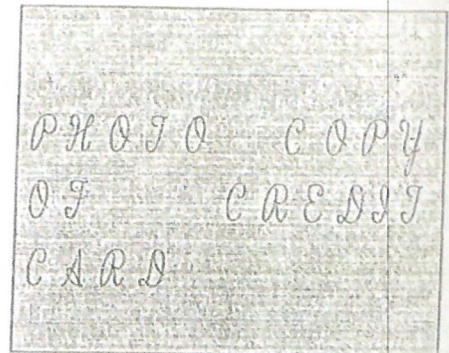 PHOTO COPY
OF CREDIT
CARD